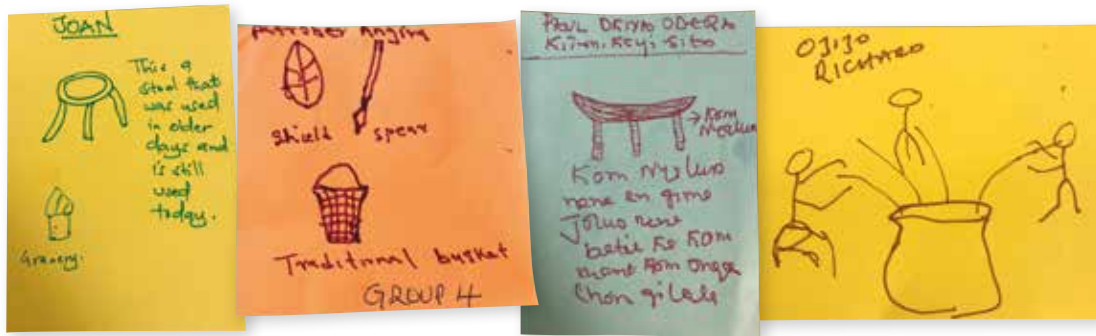 JOAN
This a
stool that
was used
in older
days and
is still
used
today.
Granery.
Angira
Shield
spear
Traditional busket
GROUP 4
PAUL ODERA
Kom
Kom Nyaluo
nane en gima
Joluo nene
betie ka kom
Kom
chon gilala
OJIJO
RICHARD